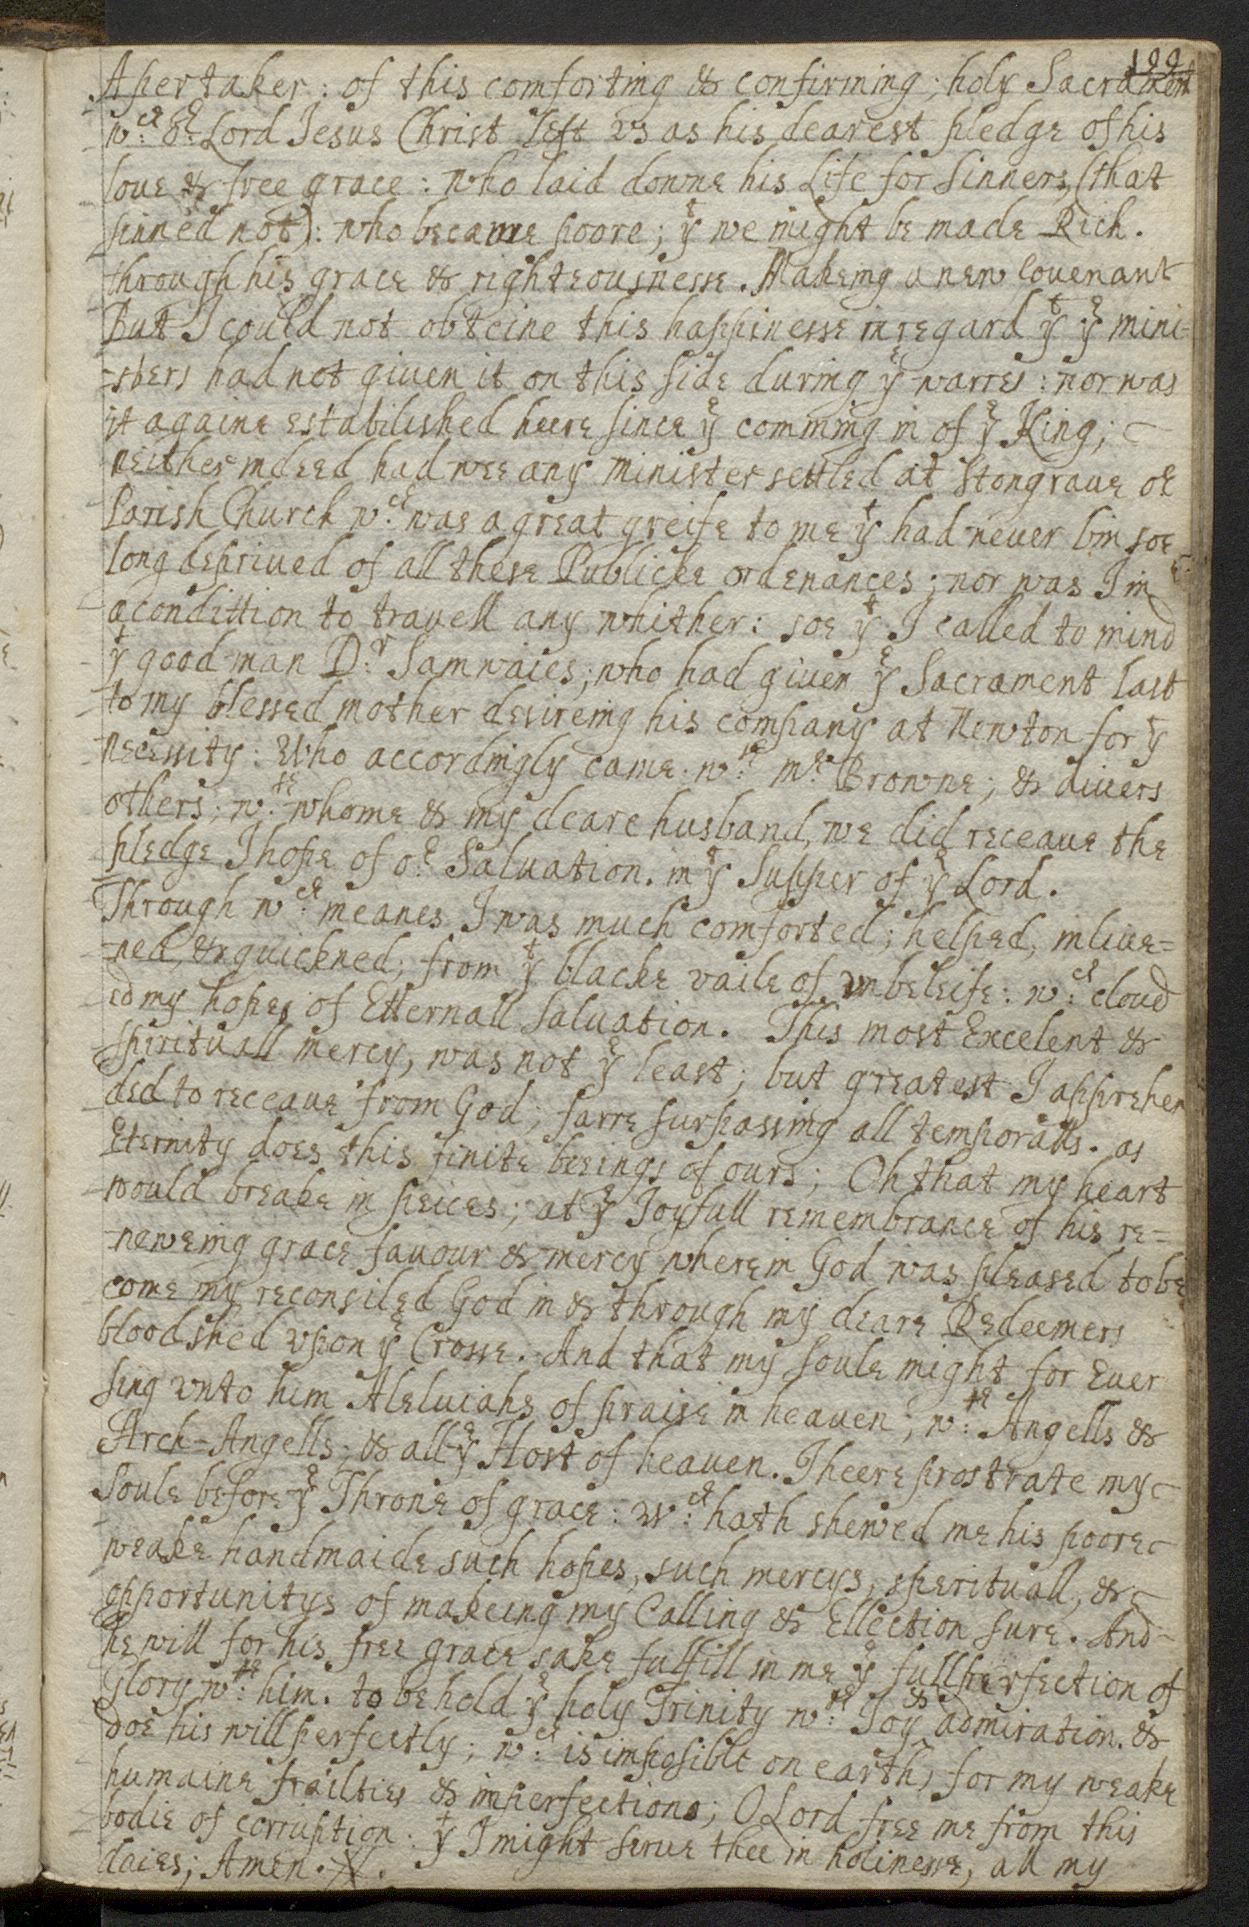 199
A pertaker: of this comforting & confirming; holy Sacrament
w:ch or: Lord Jesus Christ left vs as his dearest pledge of his
loue & free grace: who laid downe his Life for sinners, (that
sinned not): who became poore; yt we might be made Rich.
through his grace & righteousnesse. Makeing a new Couenant
But I could not obteine this happinesse in regard yt ye mini=
-sters had not giuen it on this side during ye warres: nor was
it againe establlished heere since ye comming in of ye King;
neither indeed had wee any minister settled at Stongraue or
Parish Church w:ch was a great greife to me yt had neuer bin soe
long depriued of all these Publicke ordenances; nor was I in
a condittion to trauell any whither: soe yt I called to mind
yt good man D:r Samwaies; who had giuen ye Sacrament last
to my blessed mother desireing his company at Newton for yt
necessity: Who accordingly came w:th mr: Browne; & diuers
others; w:th whome & my deare husband, we did receaue the
pledge I hope of or: Saluation. in ye Supper of ye Lord.
Through w:ch meanes I was much comforted; helped, inliue=
-ned, & quickned; from yt blacke vaile of vnbeleife: w:ch cloud
ed my hopes of Etternall saluation. This most Excelent &
spirituall mercy, was not ye least; but greatest I apprehen
ded to receaue from God; farre surpassing all temporalls. as
Eternity does this finite beeings of ours; Oh that my heart
would breake in peices; at ye Joyfull remembrance of his re=
-neweing grace fauour & mercy wherein God was pleased to be
come my reconsiled God in & through my deare Redeemers
blood shed vpon ye Crosse. And that my soule might for Euer
sing vnto him Aleluiahs of praise in heauen; w:th Angells &
Arch-Angells; & all ye Host of heauen. I heere prostrate my
Soule before ye Throne of grace: w:ch hath shewed me his poore
weake handmaide such hopes, such mercys, sperituall, &
opportunitys of makeing my Calling & Ellection sure. And
he will for his free grace sake fulfill in me ye full perfection of
Glory w:th him. to behold ye holy Trinity w:th Joy & admiration. &
doe his will perfectly; w:ch is imposible on earth, for my weake
humaine frailties & imperfections; O Lord free me from this
bodie of corruption. yt I might serue thee in holinesse, all my
daies; Amen.